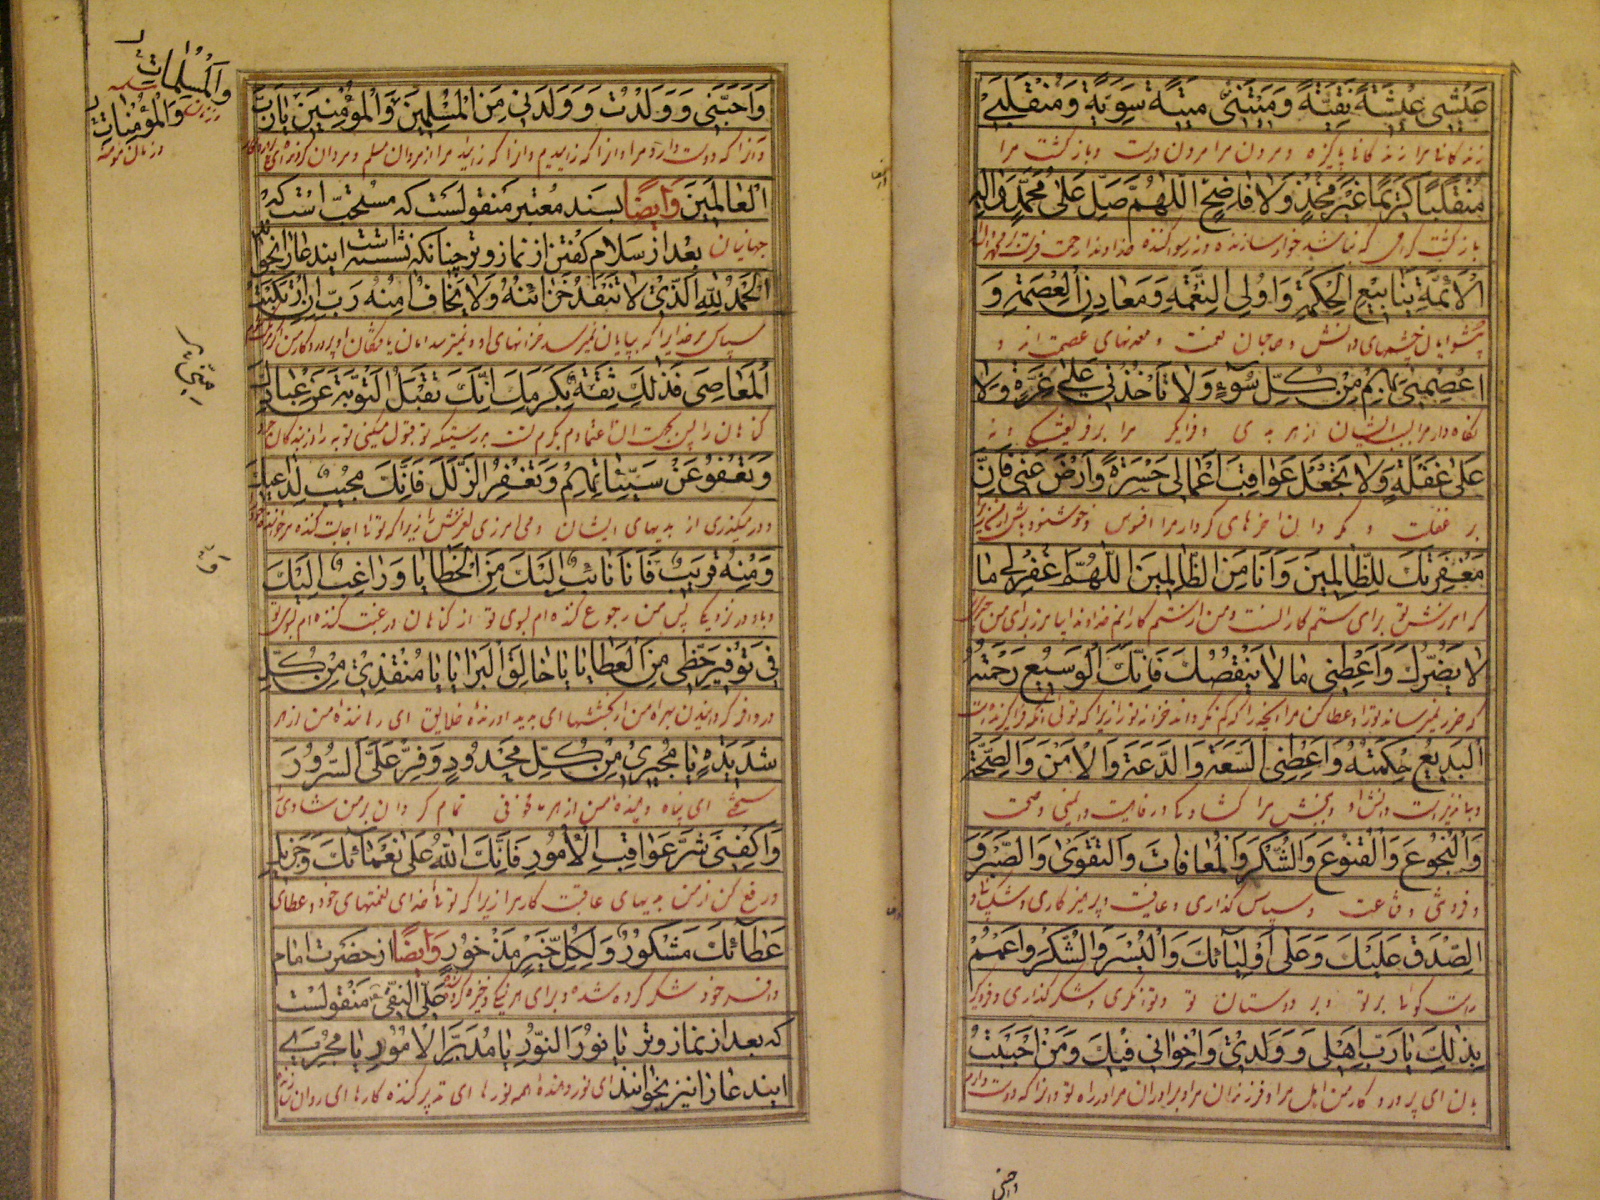 عیشی عیشة نقیّة و میتتی میتة سویة و منقلبی
زندگانی مرا زندگانی پاکیزه و مردن مرا مردن درست و بازگشت مرا
منقلبا کریما غیر مخز ولا فاضح اللّهمّ صلّ علی محمّد واله
بازگشت گرامی که نباشد خوار سازنده و نه رسوا کننده خداوندا رحمت فرست بر محمد وال
الائمّة ینابیع الحکمة و اولی النعمة و معادن العصمة و
پیشوایان چشمهای دانش و صاحبان نعمت و معدنهای عصمت اند و
اعصمنی بهم من کلّ سوء ولا تاخذنی علی غرّة ولا
نگاه دار مرا بایشان از هر بدی و فرا مگیر مرا بر فریفتگی و نه
علی غفلة ولا تجعل عواقب اعمالی حسرة وارض عنّی فانّ
بر غفلت و مگردان اخرهای کردار مرا افسوس و خوشنود باش از من زیرا
مغفرتک للظّالمین وانا من الظّالمین اللّهمّ اغفرلی ما
که امرزش تو برای ستم کارانست و من از ستم کارانم خداوندا بیامرز برای من
لا یضرّک واعطنی ما لا ینقصک فانّک الوسیع رحمته
که ضرر نمیرساند تو را و عطا کن مرا انچه را که کم نگرداند خزانه تو را زیرا که توئی
البدیع حکمته واعطنی السّعة والدّعة والامن والصّحّة
دانش او و ببخش مرا گشادگی و رفاهیت و ایمنی و صحت
والنجوع والقنوع والشّکر والمعافات والتقوی والصّبر و
و فروتنی و قناعت و سپاس گذاری و عافیت و پرهیزکاری و شکیبائی و
الصّدق علیک و علی اولیائک والیسر والشکر واعمم
راست گوئی بر تو و بر دوستان تو و توانگری و شکر گذاری و فروگیر
بذلک یا ربّ اهلی و ولدی و اخوانی فیک و من احببت
بان ای پروردگار من اهل مرا و فرزندان مرا و برادران مرا در راه تو و انرا که دوست دارم
واحبّنی
و احبّنی و ولدت و ولدنی من المسلمین والمؤمنین یا ربّ
و انرا که دوست دارد مرا و انرا که زائیدم و انرا که زائید مرا از مردان مسلم و مردان گرونده ای پروردگار
العالمین وایضا بسند معتبر منقولست که مستحبّ است که
جهانیان بعد از سلام گفتن از نماز وتر چنانکه نشسته است ایندعا را بخواند
الحمد للّه الّذی لا تنفد خزائنه ولا یخاف امنه ربّ ان ارتکبت
سپاس مر خدایرا که بپایان نمیرسد خزانهای او و نمیترسد امان یافتگان او پروردگار من اگر
المعاصی فذلک ثقة بکرمک انّک تقبل التوبة عن عبادک
گناهان را پس بجهت اعتمادم بکرم تست بدرستیکه تو قبول میکنی توبه را از بندگان خود
و تعفو عن سیّئاتهم و تغفر الزّلل فانّک مجیب لداعیک
و در میگذری از بدیهای ایشان و می امرزی لغزش را زیرا که توئی اجابت کننده مر خواننده خود
و منه قریب فانا تائب الیک من الخطایا و راغب الیک
و باو نزدیک پس من رجوع کننده ام بسوی تو از گناهان و رغبت کننده ام بسوی تو
فی توفیر حظّی من العطایا یا خالق البرایا یا منقذی من کلّ
در وافر گردانیدن بهره من از بخششهای ای پدید اورنده خلایق ای رهاننده من از هر
شدیدة یا مجیری من کلّ محذور وفّر علیّ السّرور
سختی ای پناه دهنده من از هر مخوفی تمام گردان بر من شادی را
واکفنی شرّ عواقب الامور فانّک اللّه علی نعمائک و جزیل
و رفع کن از من بدیهای عاقبت کارها را زیرا که توئی خدای نعمتهای خود و عطای
عطائک مشکور و لکلّ خیر مذخور وایضا از حضرت امام
وافر خود شکر کرده شده و برای هر نیکی ذخیره کرده علیّ النقی منقولست
که بعد از نماز وتر یا نور النّور یا مدبّر الامور یا مجری
ایندعا را نیز بخوانند ای نور دهنده همه نورها ای تدبیر کننده کارها ای روان
والمسلمات
والمؤمنات
و زنان مؤمنه